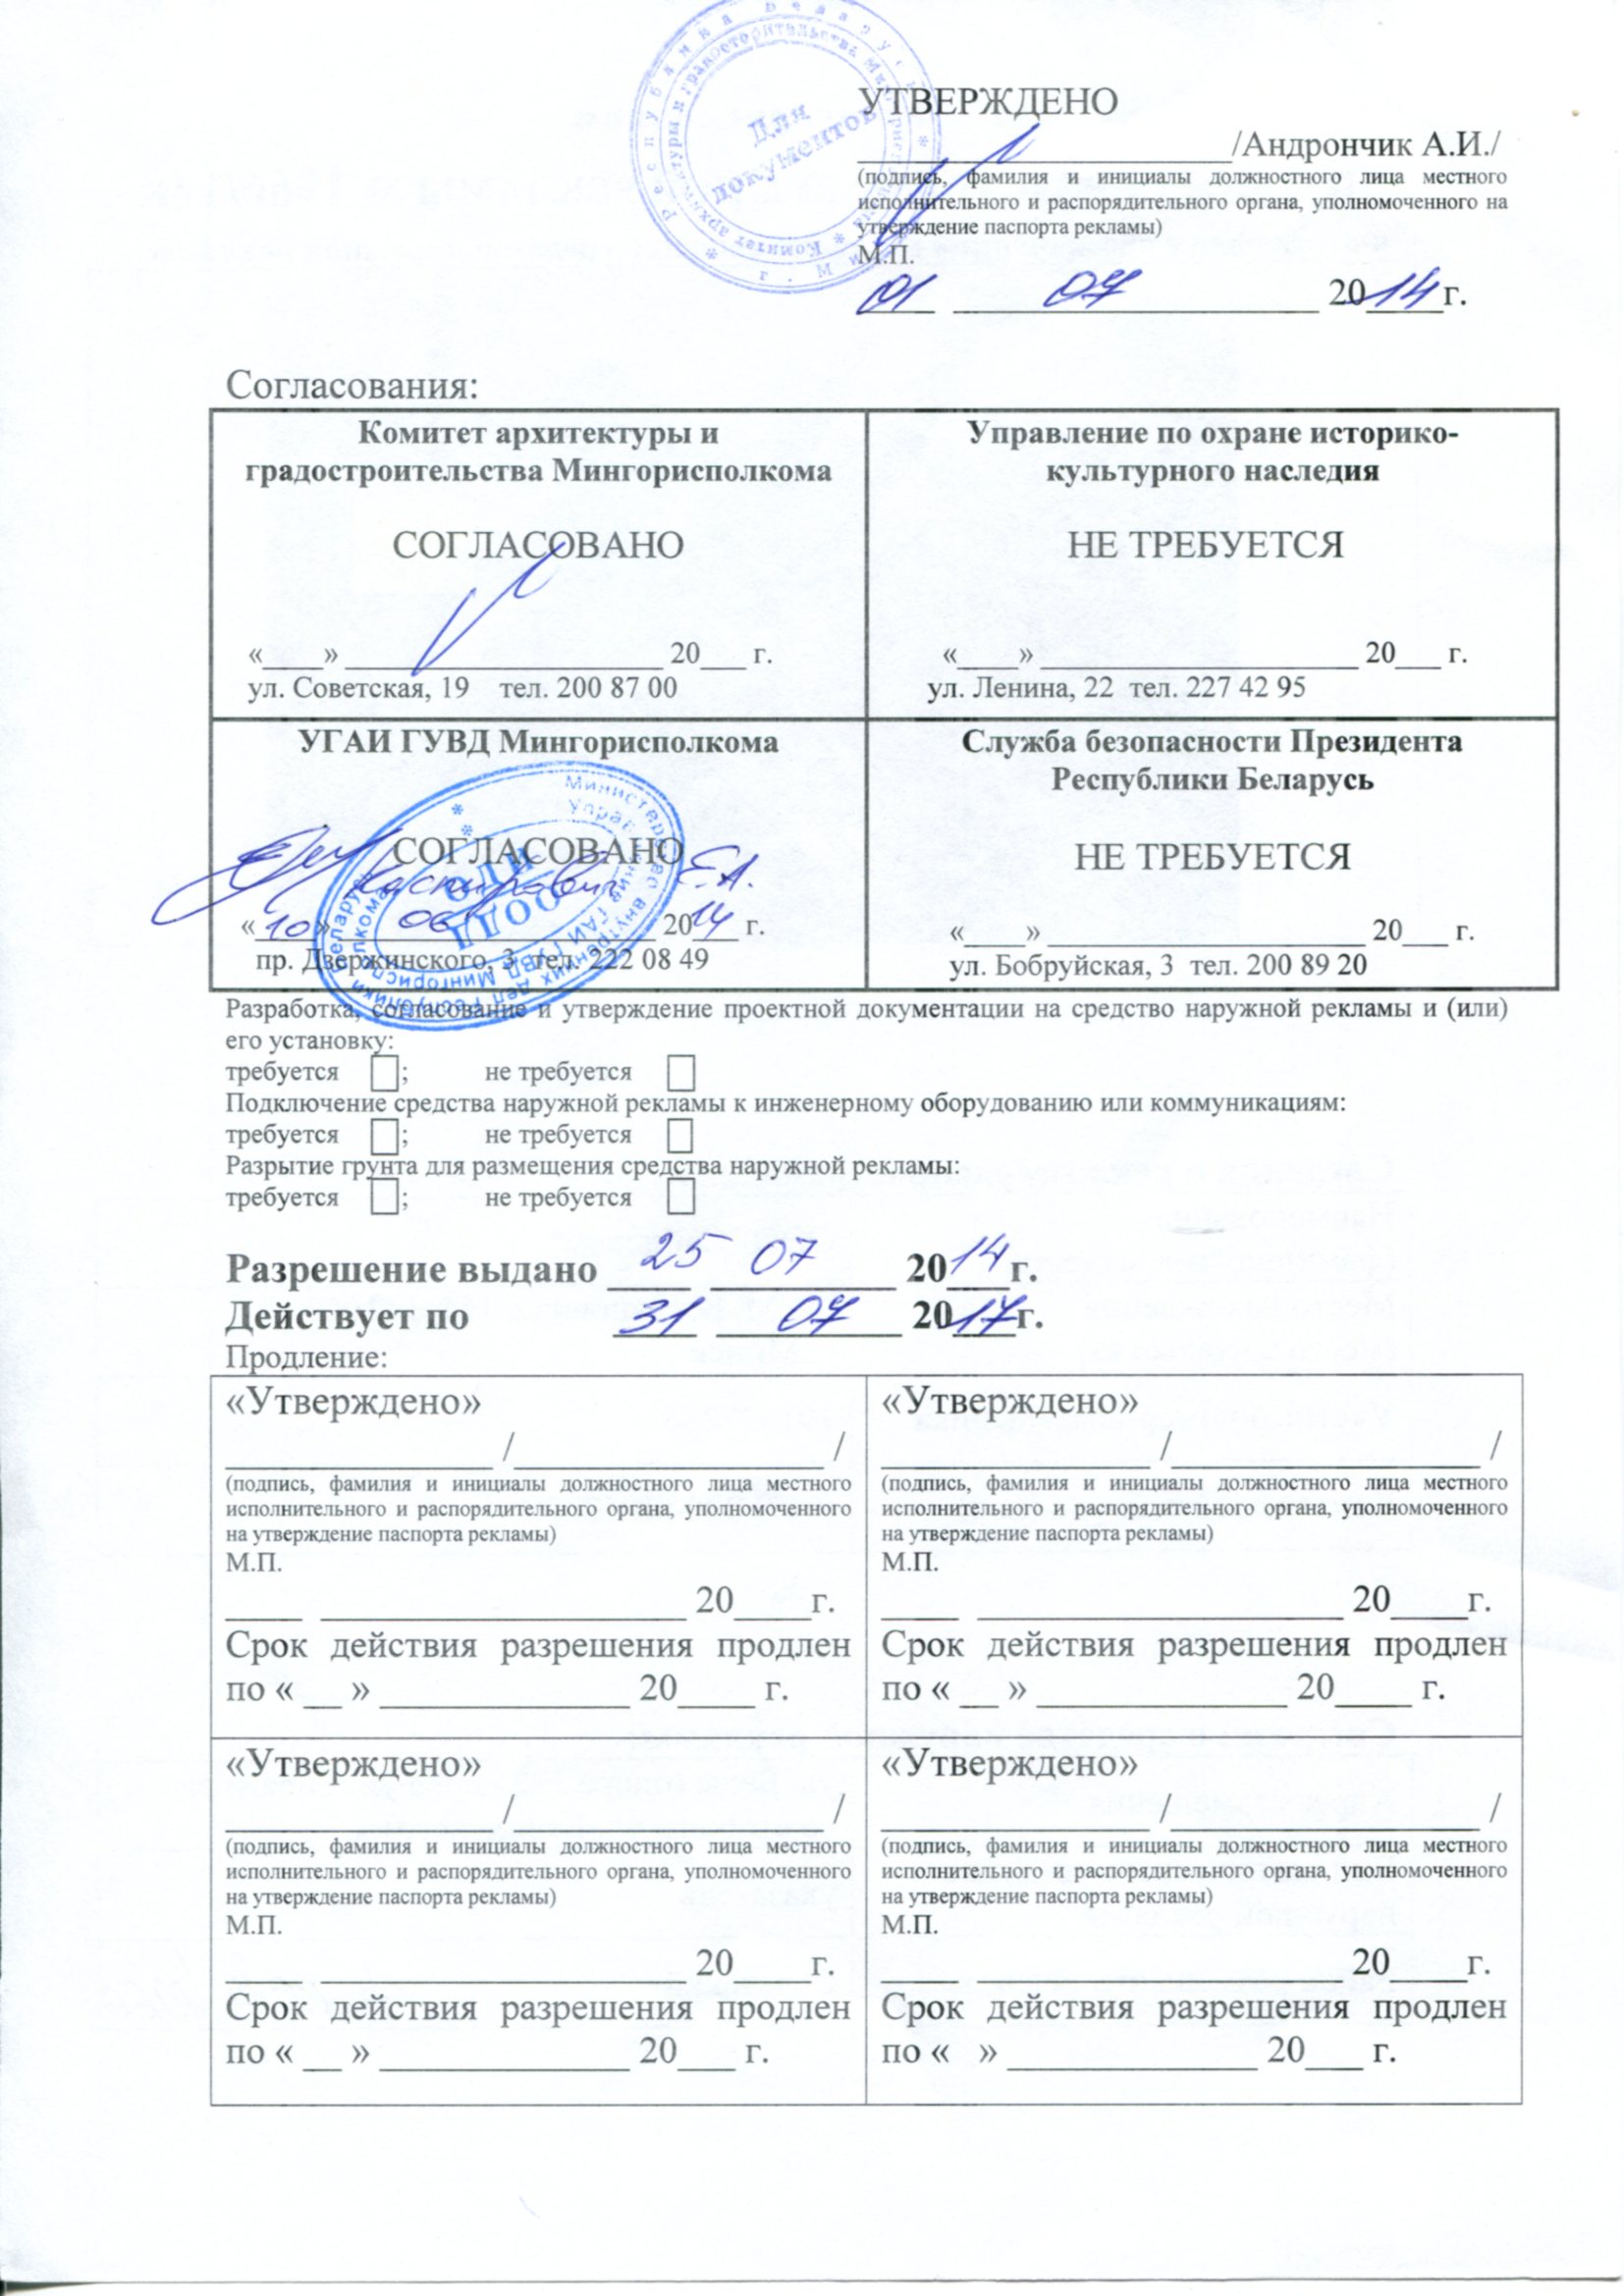 Республика Беларусь * г. Минск *
Комитет архитектуры и градостроительства Мингорисполкома *
Для
документов
УТВЕРЖДЕНО
____________________/Андрончик А.И./
(подпись, фамилия и инициалы должностного лица местного
исполнительного и распорядительного органа, уполномоченного на
утверждение паспорта рекламы)
М.П.
01 07 2014г.
Согласования:
Комитет архитектуры и
градостроительства Мингорисполкома
СОГЛАСОВАНО
«____» ____________________ 20___ г.
ул. Советская, 19 тел. 200 87 00
Управление по охране историко-
культурного наследия
НЕ ТРЕБУЕТСЯ
«____» ____________________ 20___ г.
ул. Ленина, 22 тел. 227 42 95
УГАИ ГУВД Мингорисполкома
СОГЛАСОВАНО
Е.А.
«10» 06 2014 г.
пр. Дзержинского, 3 тел. 222 08 49
Министерство внутренних дел Республики Беларусь
Управление ГАИ ГУВД Мингорисполкома
ОДИ
ООДД
Служба безопасности Президента
Республики Беларусь
НЕ ТРЕБУЕТСЯ
«____» ____________________ 20___ г.
ул. Бобруйская, 3 тел. 200 89 20
Разработка, согласование и утверждение проектной документации на средство наружной рекламы и (или)
его установку:
требуется ; не требуется
Подключение средства наружной рекламы к инженерному оборудованию или коммуникациям:
требуется ; не требуется
Разрытие грунта для размещения средства наружной рекламы:
требуется ; не требуется
Разрешение выдано 25 07 2014г.
Действует по 31 07 2017г.
Продление:
«Утверждено»
______________ /________________ /
(подпись, фамилия и инициалы должностного лица местного
исполнительного и распорядительного органа, уполномоченного
на утверждение паспорта рекламы)
М.П.
____ ___________________ 20____г.
Срок действия разрешения продлен
по « __ » _____________ 20____ г.
«Утверждено»
______________ /________________ /
(подпись, фамилия и инициалы должностного лица местного
исполнительного и распорядительного органа, уполномоченного
на утверждение паспорта рекламы)
М.П.
____ ___________________ 20____г.
Срок действия разрешения продлен
по « __ » _____________ 20____ г.
«Утверждено»
______________ /________________ /
(подпись, фамилия и инициалы должностного лица местного
исполнительного и распорядительного органа, уполномоченного
на утверждение паспорта рекламы)
М.П.
____ ___________________ 20____г.
Срок действия разрешения продлен
по « __ » _____________ 20___ г.
«Утверждено»
______________ /________________ /
(подпись, фамилия и инициалы должностного лица местного
исполнительного и распорядительного органа, уполномоченного
на утверждение паспорта рекламы)
М.П.
____ ___________________ 20____г.
Срок действия разрешения продлен
по « » _____________ 20___ г.